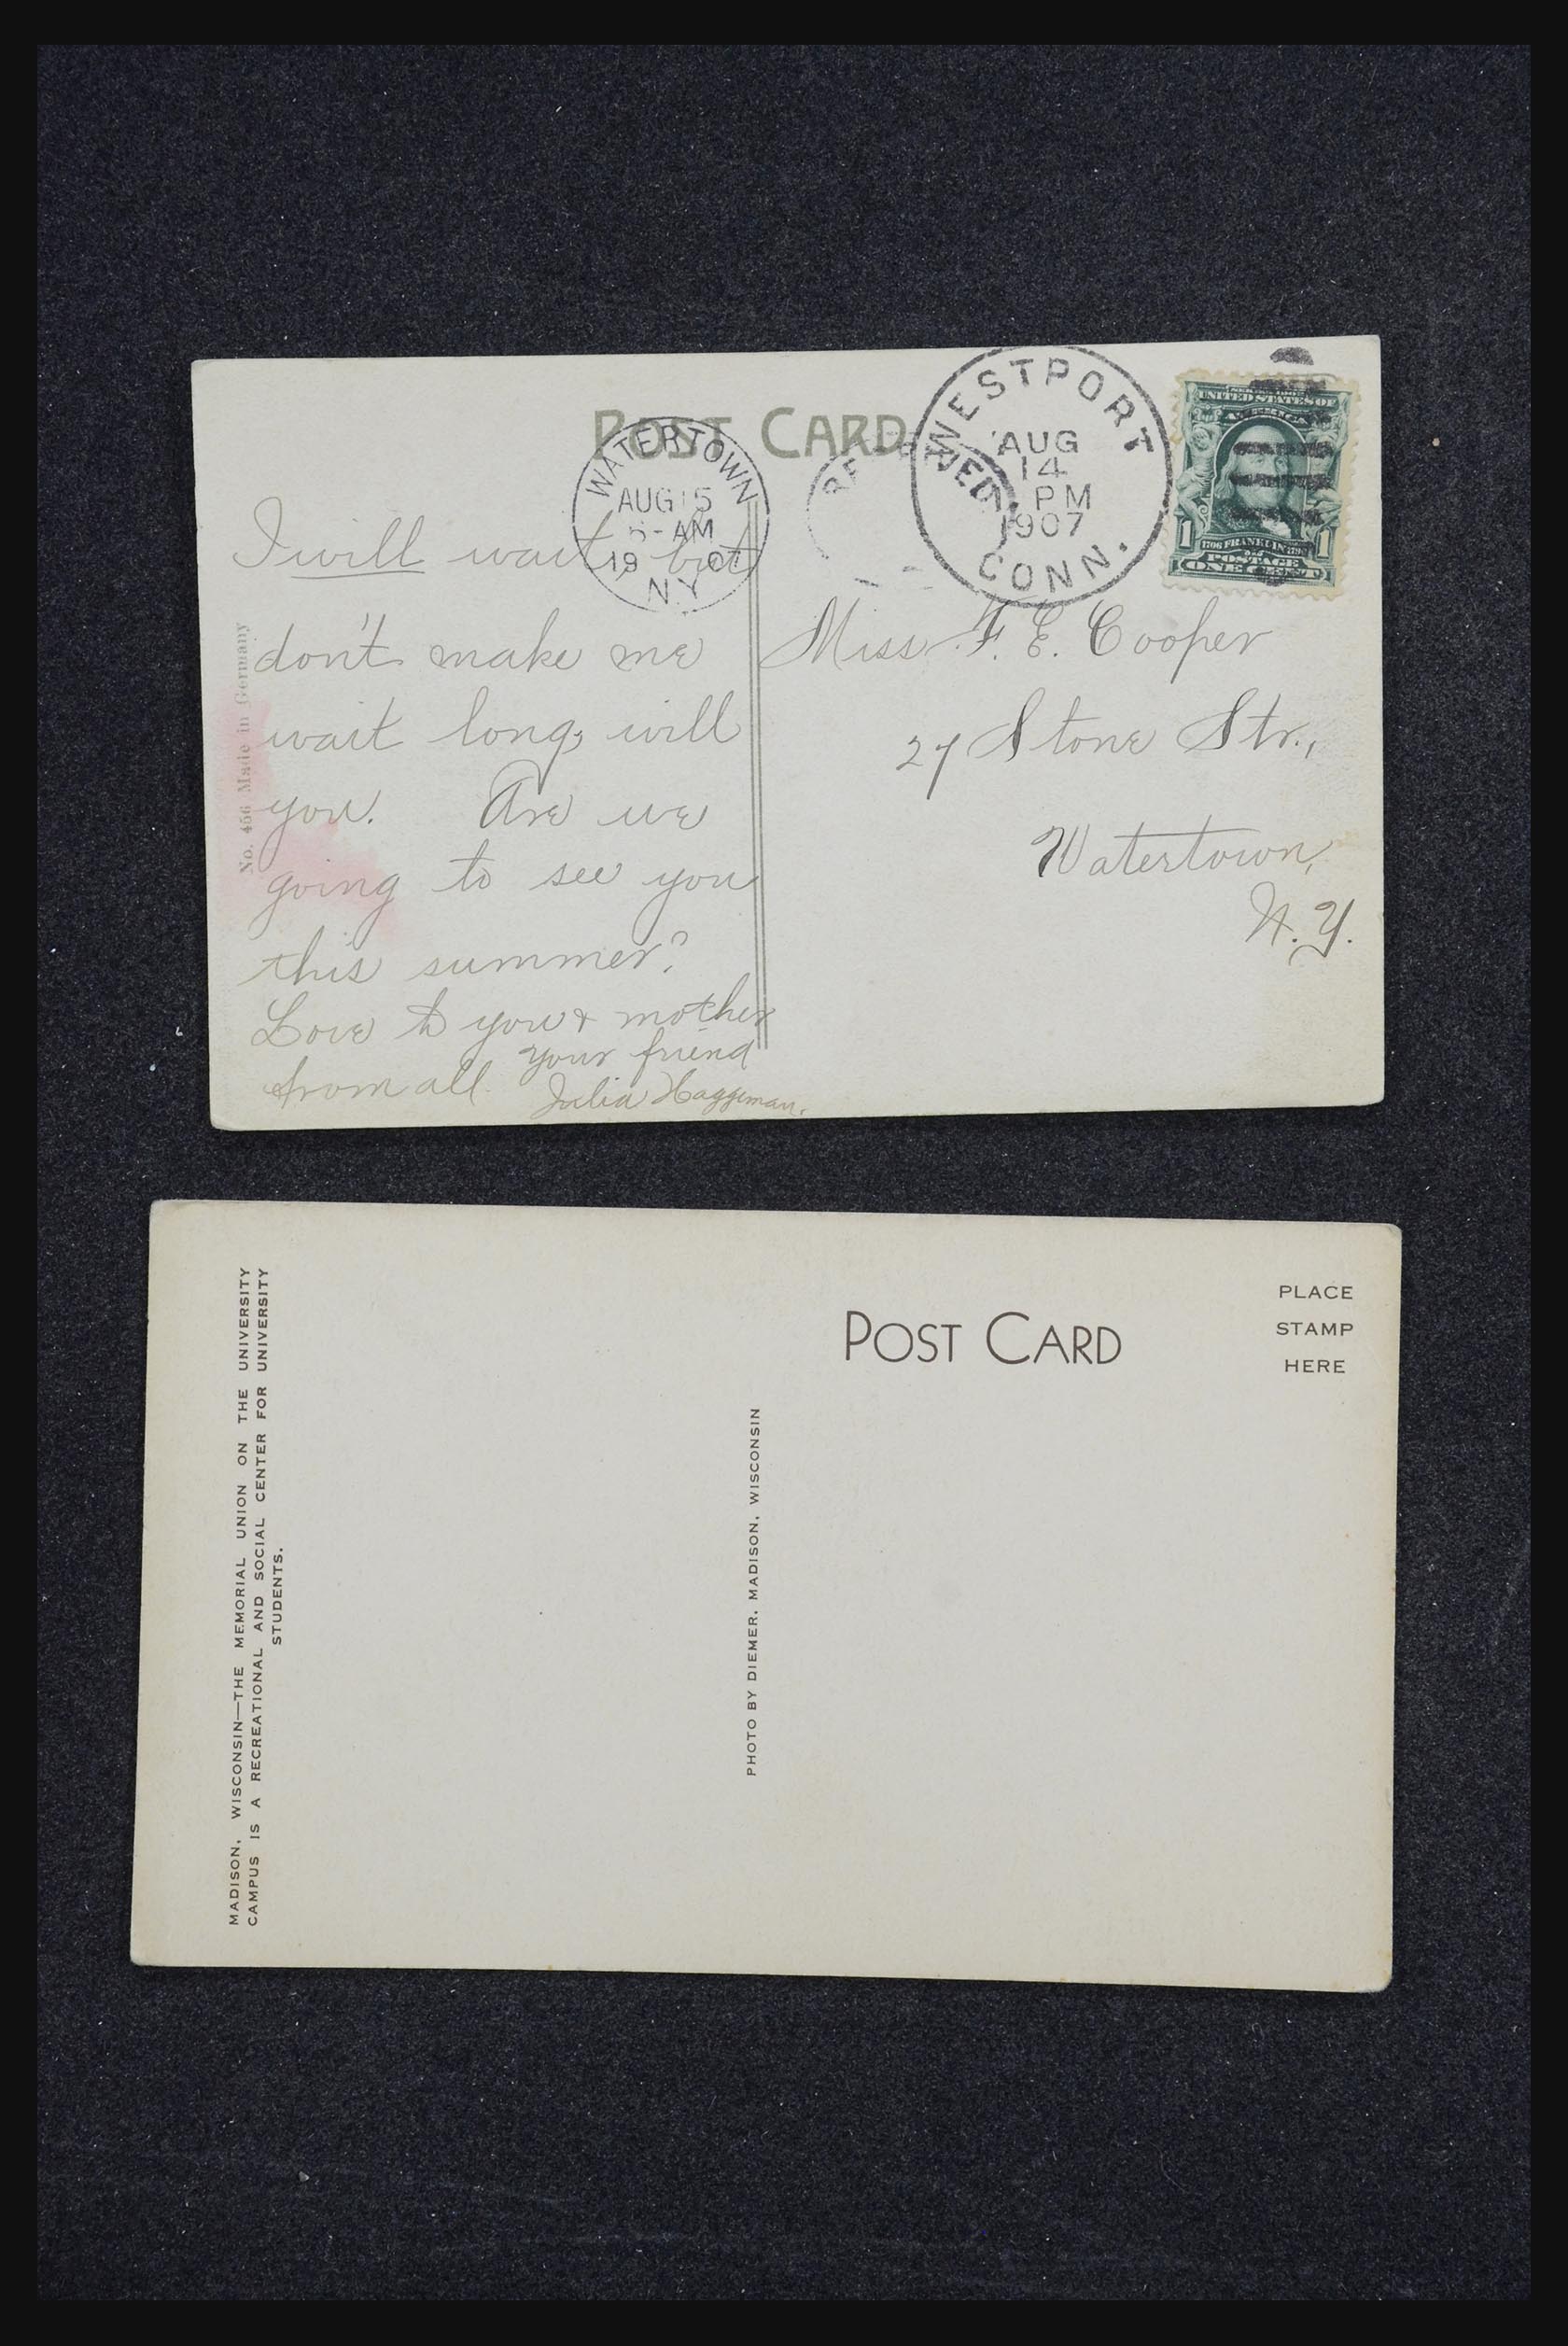 POST CARD
WATERTOWN
AUG 15
AM
19 07
N.Y.
RECEIVED
WESTPORT
AUG
14
PM
1907
CONN.
UNITED STATES OF
AMERICA
1 1706 FRANKLIN 1790 1
POSTAGE
ONE CENT
No. 456 Made in Germany
I will wait, but
don't make me
wait long, will
you. Are we
going to see you
this summer?
Love to you & mother
from all. your friend
Julia Haggeman.
Miss F. E. Cooper
27 Stone Str.,
Watertown,
N.Y.
MADISON, WISCONSIN—THE MEMORIAL UNION ON THE UNIVERSITY
CAMPUS IS A RECREATIONAL AND SOCIAL CENTER FOR UNIVERSITY
STUDENTS.
POST CARD
PLACE
STAMP
HERE
PHOTO BY DIEMER, MADISON, WISCONSIN